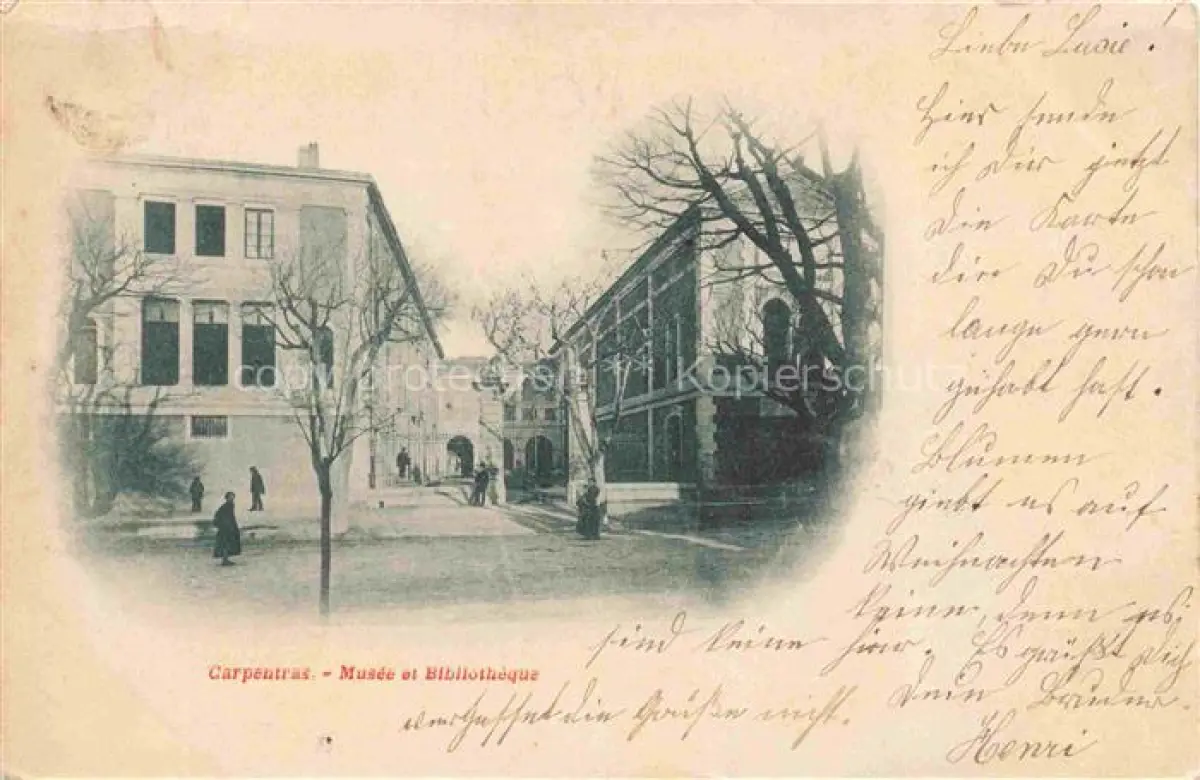 Liebe Lucie!
Hier sende
ich Dir jetzt
die Karte
die Du schon
lange gern
gehabt hast.
Blumen
giebt es auf
Weihnachten
keine, denn es
sind keine hier. Es grüßt Dich
Dein Bruder.
Henri
die Grüße nicht.
Carpentras. - Musée et Bibliothèque
copyright protected Kopierschutz